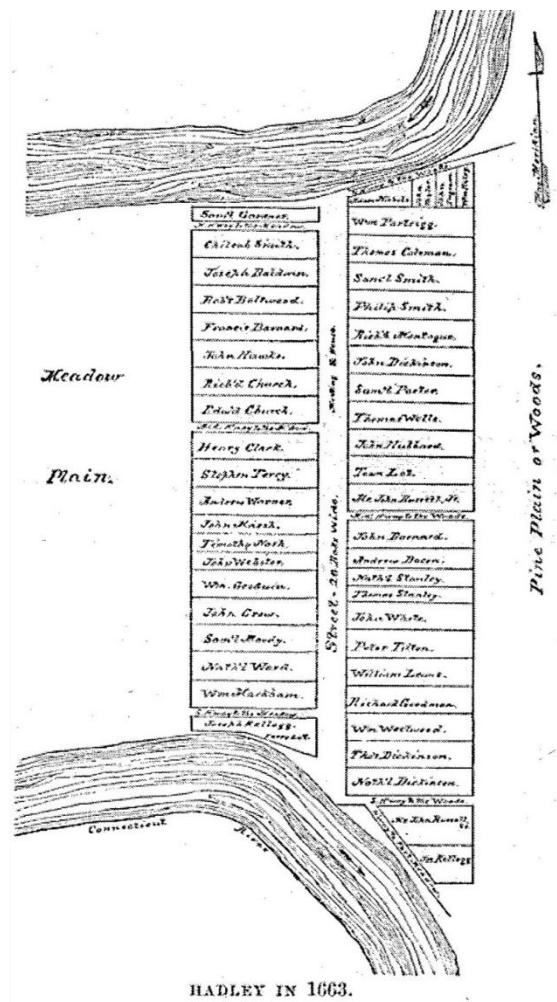 Meridian
Sam'l Gardner.
Chileab Smith.
Joseph Baldwin.
Rob't Boltwood.
Francis Barnard.
John Hawks.
Rich'd Church.
Edw'd Church.
Henry Clark.
Stephen Terry.
Andrew Warner.
John Marsh.
Timothy Nash.
John Webster.
Wm. Goodwin.
John Crow.
Sam'l Moody.
Nath'l Ward.
Wm Markham.
S. H'way to the Meadow
Joseph Kellogg
Ferry Lot.
Meadow
Plain.
Meeting House.
Street - 20 Rods Wide.
Wm Partrigg.
Thomas Coleman.
Sam'l Smith.
Philip Smith.
Rich'd Montague.
John Dickinson.
Sam'l Porter.
Thomas Wells.
John Hubbard.
Town Lot.
Mr. John Russell, Jr.
Mid. H'way to the Woods.
John Barnard.
Andrew Bacon.
Nath'l Stanley.
Thomas Stanley.
John White.
Peter Tilton.
William Lewis.
Richard Goodman.
Wm Westwood.
Thos Dickinson.
Nath'l Dickinson.
S. H'way to the Woods.
Mr. John Russell
Jos Kellogg
Pine Plain or Woods.
Connecticut River
HADLEY IN 1663.